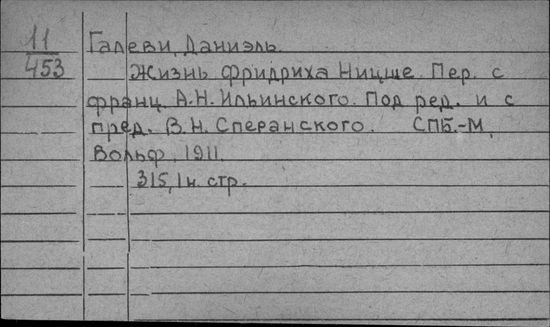 11
453
Галеви, Даниэль.
Жизнь Фридриха Ницше. Пер. с
франц. А.Н. Ильинского. Под ред. и с
пред. В.Н. Сперанского. СПБ.-М,
Вольф, 1911.
315, 1 н. стр.